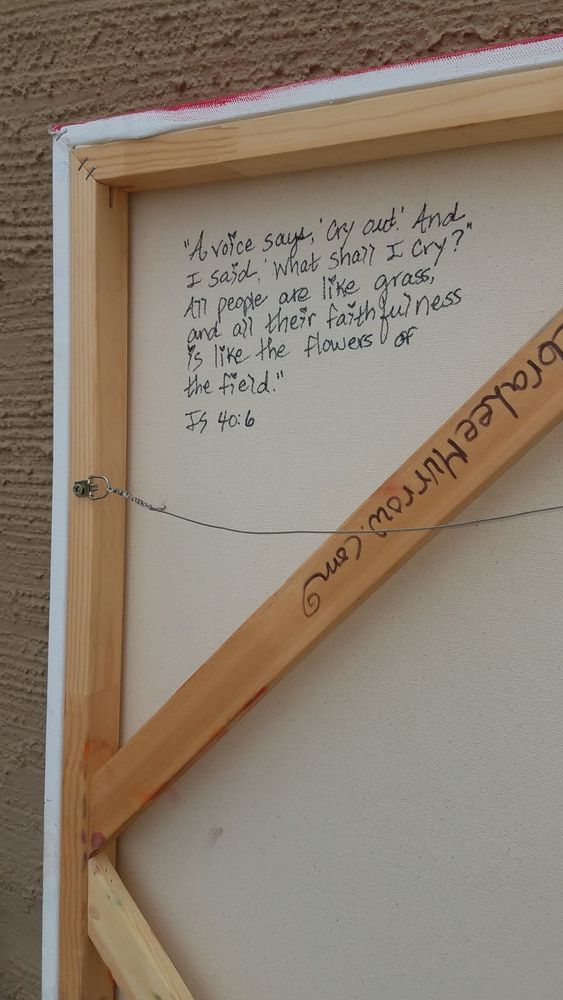 "A voice says, 'Cry out.' And
I said, 'What shall I Cry?"
All people are like grass,
and all their faithfulness
is like the flowers of
the field."
IS 40:6
braLeeMurrow.com